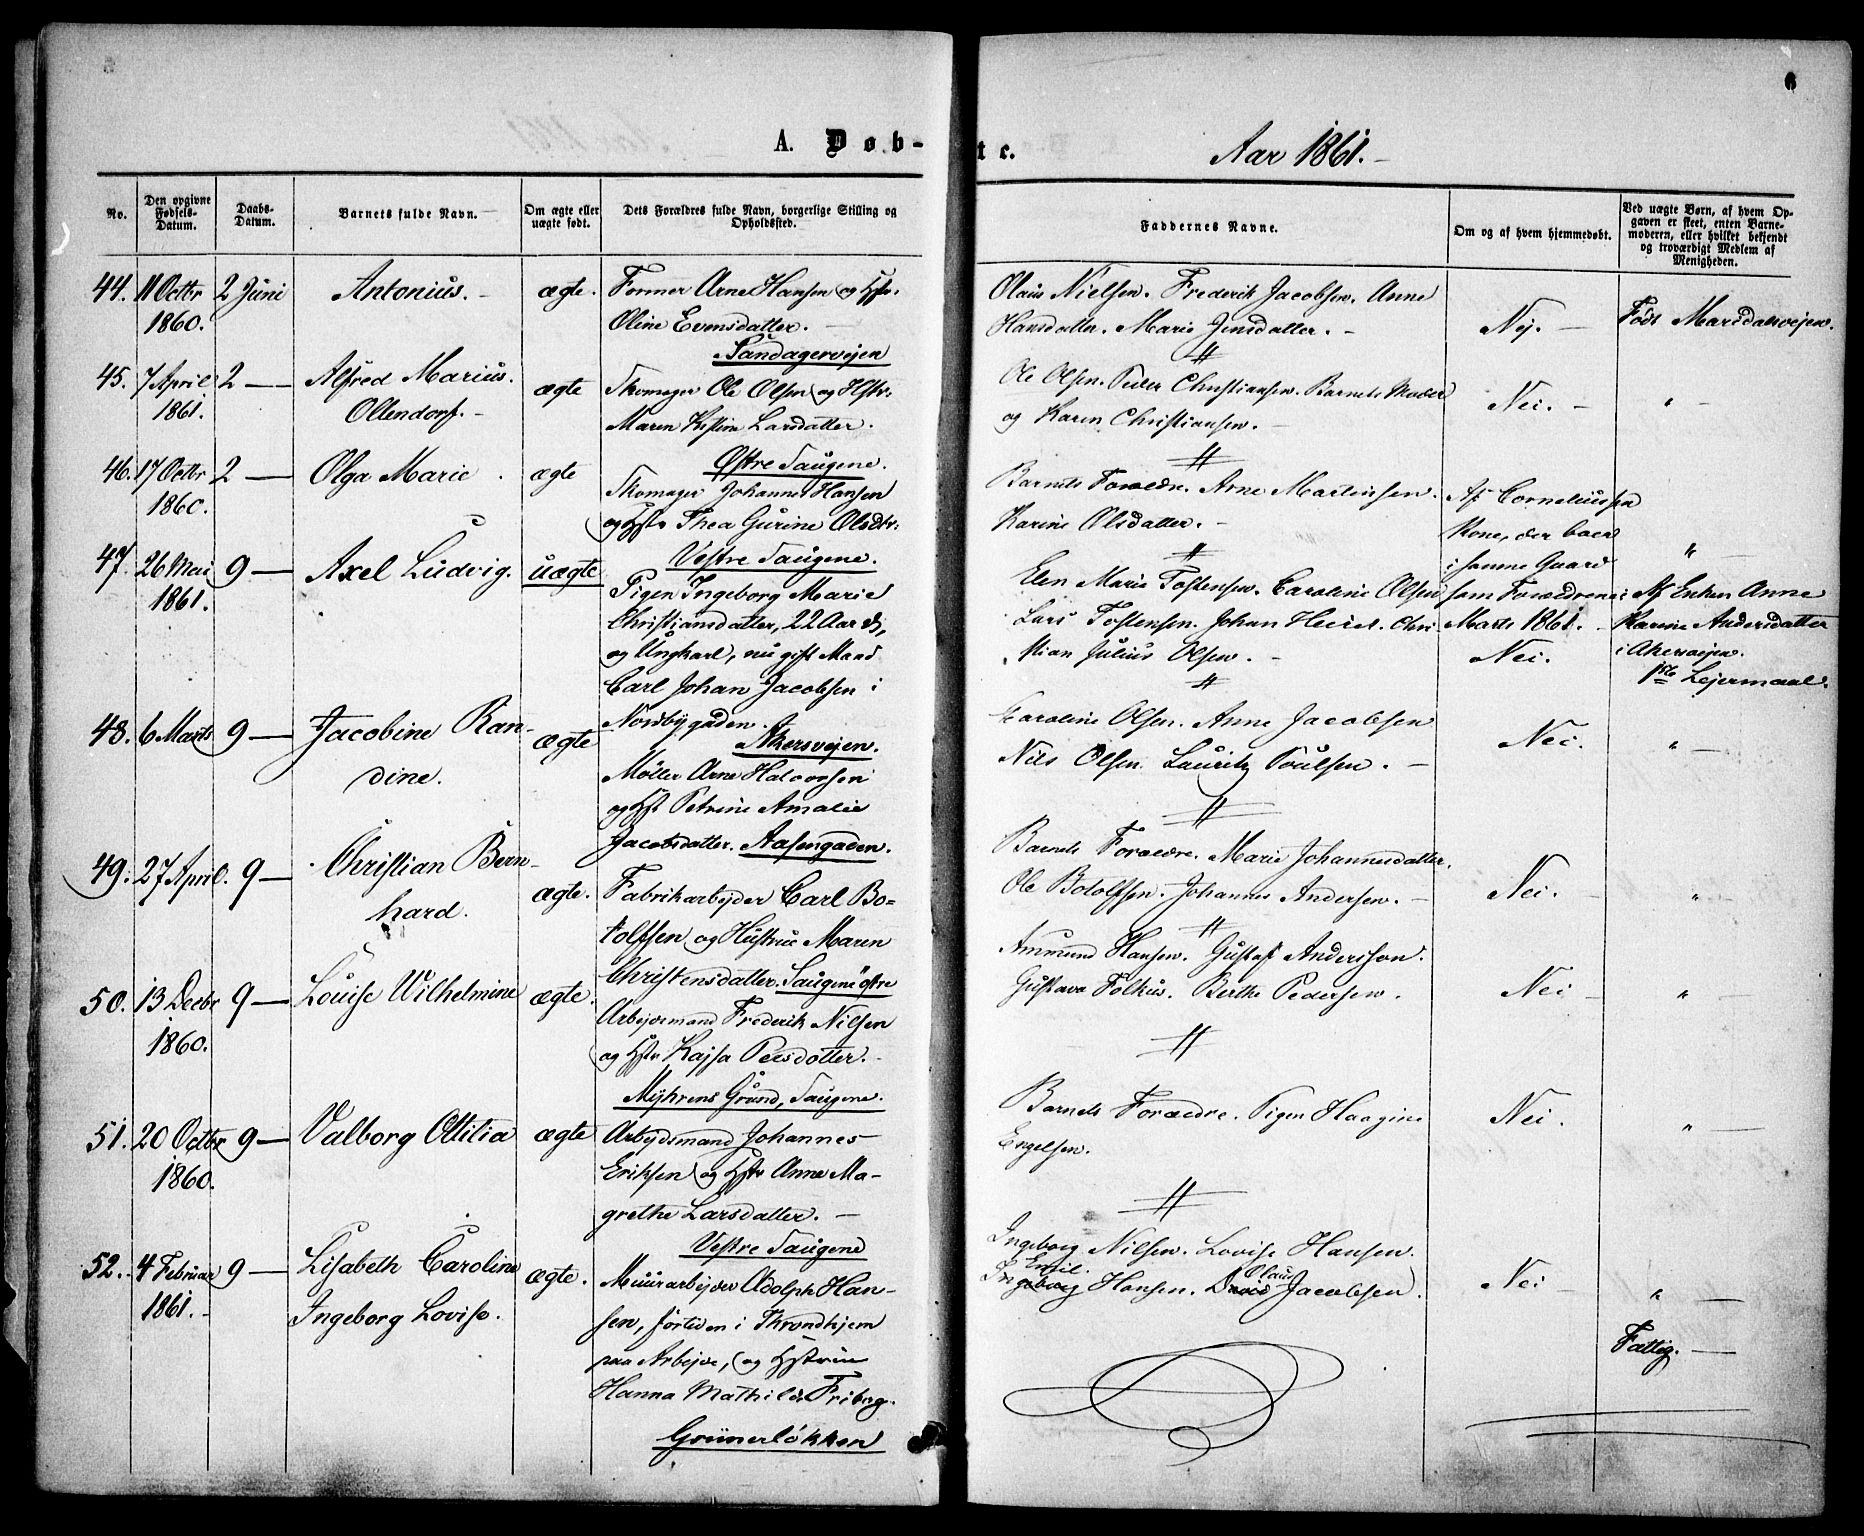 6
A. Døb-
te.
Aar 1861.-
No.
Den opgivne Fødsels-Datum.
Daabs-Datum.
Barnets fulde Navn.
Om ægte eller uægte født.
Dets Forældres fulde Navn, borgerlige Stilling og Opholdssted.
Faddernes Navne.
Om og af hvem hjemmedøbt.
Ved uægte Børn, af hvem Op-
gaven er skeet, enten Barne-
moderen, eller hvilket bekjendt
og troværdigt Medlem af
Menigheden.
44. 11 Octbr 1860. 2 Juni
Antonius.
ægte.
Former Arne Hansen og Hstr.
Oline Evensdatter.
Sandagervejen
Olaus Nielsen. Frederik Jacobsen. Anne
Hansdatter. Marie Jensdatter.
Nej.
Født Maridalsvejen.
45. 7 April 1861. 2
Alfred Marius.
Ollendorf.
ægte
Skomager Ole Olsen og Hstr.
Maren Kistine Larsdatter.
Østre Saugene.
Ole Olsen. Peder Christiansen. Barnets Moder
og Karen Christiansen.
Nei.
"
46. 17 Octbr 1860. 2
Olga Marie
ægte
Skomager Johannes Hansen
og Hstr Thea Gurine Olsdtr.
Vestre Saugene.
Barnets Forældre. Arne Martinsen.
Karine Olsdatter.
Af Corneliussen
Kone, der boer
i samme Gaard
som Forældrene i
Marts 1861.
"
47. 26 Mai 1861. 9
Axel Ludvig.
uægte
Pigen Ingeborg Marie
Christiansdatter, 22 Aar
og Ungkarl, nu gift Mand
Carl Johan Jacobsen i
Nordbygaden.
Akersvejen.
Elen Marie Tostensen. Caroline Olsen
Lars Tostensen. Johan . Chri-
stian Julius Olsen.
Nei.
Af Enken Anne
Karine Andersdatter
i Akersvejen.
1ste Lejermaal.
48. 6 Marts 9
Jacobine Ran-
dine.
ægte
Møller Arne Halvorsen
og Hst Petrine Amalie
Jacobsdatter. Aasengaden.
Karoline Olsen. Anne Jacobsen
Nils Olsen. Lauritz Poulsen.
Nei.
"
49. 27 April. 9
Christian Bern-
hard.
ægte.
Fabrikarbejder Carl Bo-
tolfsen og Hustrue Maren
Christensdatter. Saugene østre
Barnets Forældre. Marie Johannesdatter.
Ole Botolfsen. Johannes Andersen.
Nei.
"
50. 13 Decbr 1860. 9
Louise Wilhelmine
ægte.
Arbejdsmand Frederik Nilsen
og Hstr Kajsa Persdotter.
Myhrens Grund, Saugene.
Amund Hansen. Gustaf Andersson.
Gustava Folkus. Berthe Pedersen.
Nei
"
51. 20 Octbr 1860. 9
Valborg Ottilia
ægte
Arbejdsmand Johannes
Eriksen og Hstr Anne Ma-
grethe Larsdatter.
Vestre Saugene
Barnets Forældre. Pigen Haagine
Engelsen.
Nei.
"
52. 4 Februar 1861. 9
Lisabeth Caroline
Ingeborg Lovise.
ægte.
Muurarbejder Adolph Han-
sen, fortiden i Throndhjem
paa Arbejde, og Hstrue
Hanna Mathilde Friberg.
Grünerløkken
Ingeborg Nilsen. Lovise Hansen.
Emil Olaus
Ingeborg Hansen. David Jacobsen.
Nei
"
Fattig.